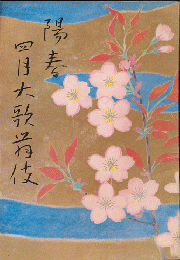 陽春
四月大歌舞伎